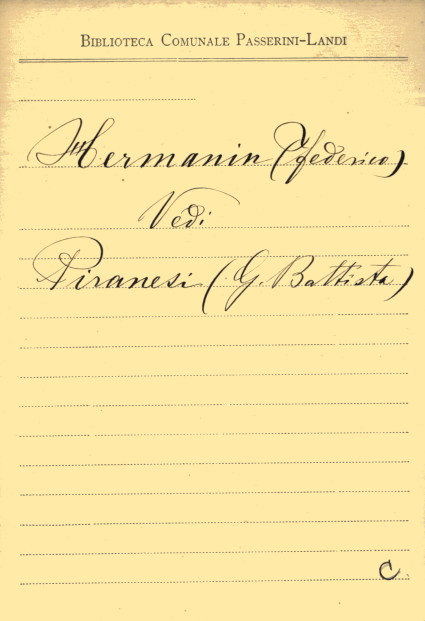 Biblioteca Comunale Passerini-Landi
Hermanin (Federico)
Vedi
Piranesi (G. Battista)
C.